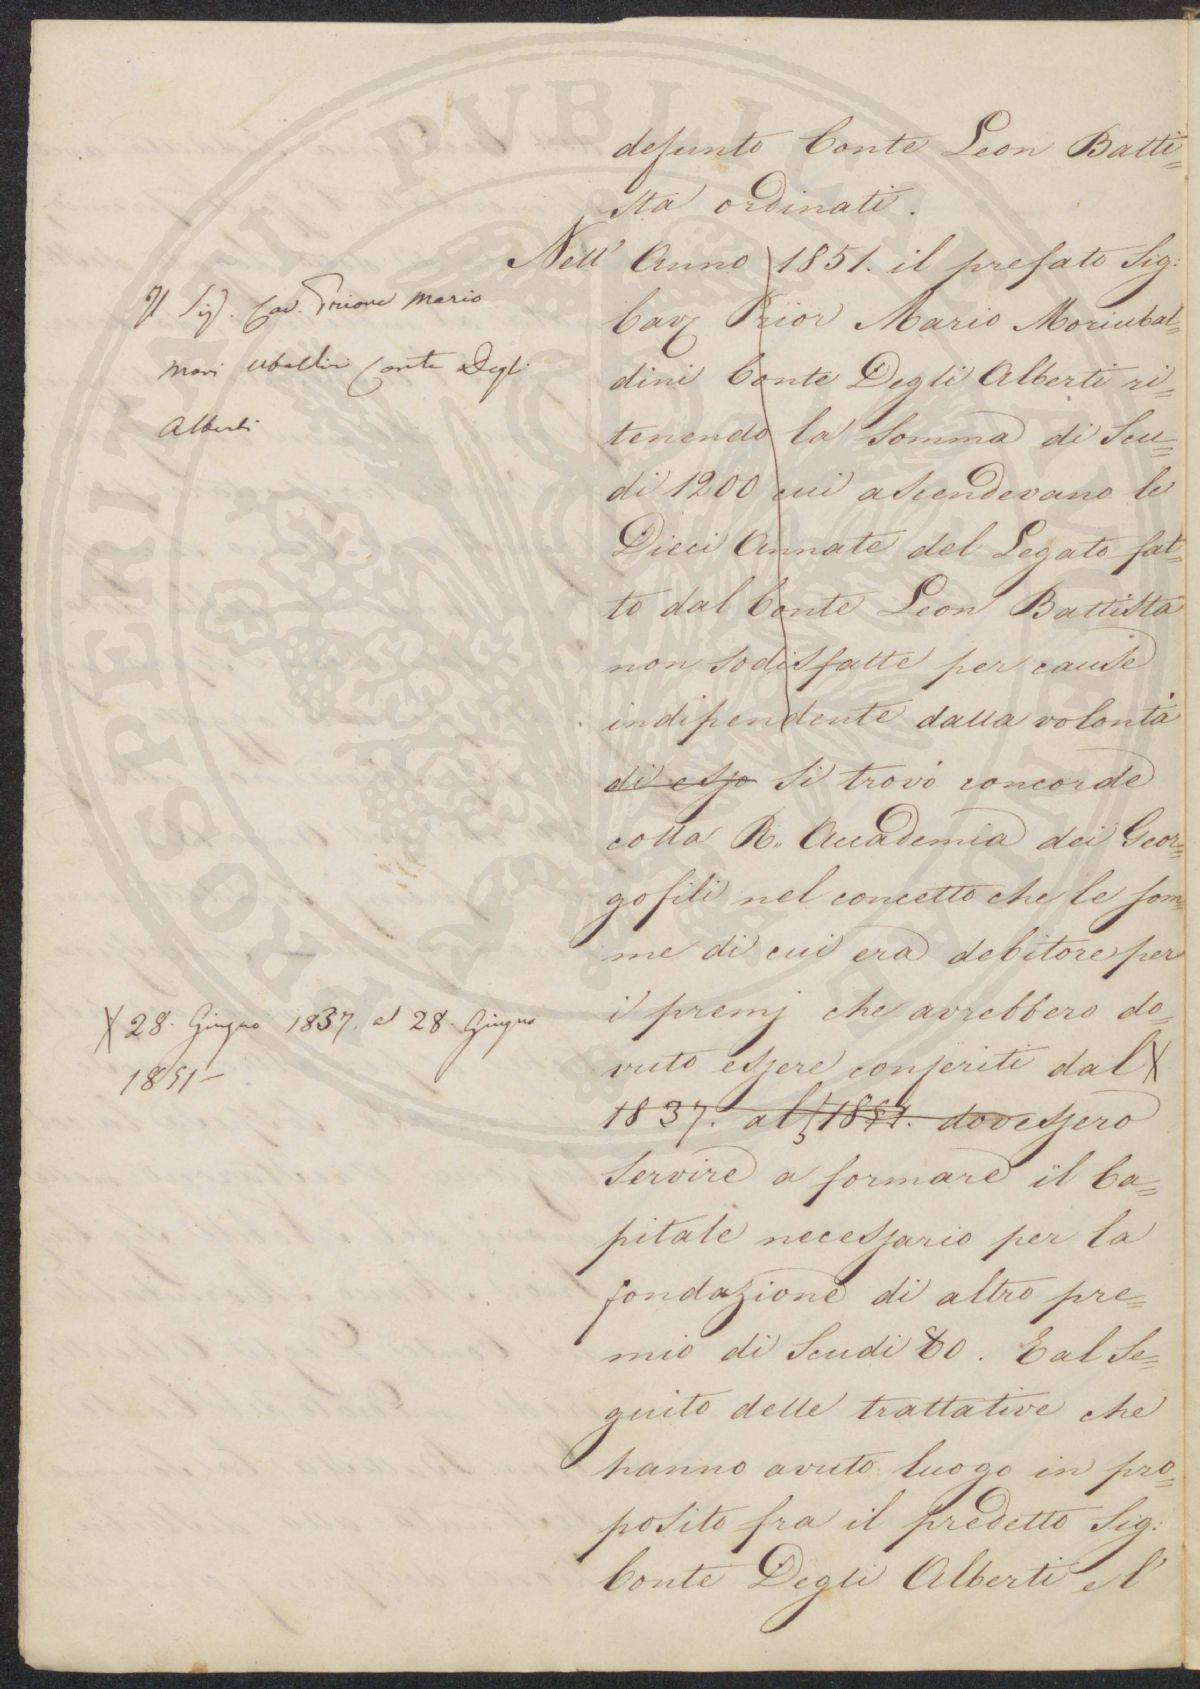 defunto Conte Leon Batti=
sta ordinati.
Nell' Anno 1851. il prefato Sig:
Cav Prior Mario Moriubal=
dini Conte Degli Alberti ri=
tenendo la Somma di Scu=
di 1200 cui ascendevano le
Dieci Annate del Legato fat=
to dal Conte Leon Battista
non sodisfatte per cause
indipendente dalla volontà
di esso si trovò concorde
colla R. Accademia dei Geor=
gofili nel concetto che le som=
me di cui era debitore per
i premj che avrebbero do=
vuto essere conferiti dal X
1837. al 1851. dovessero
servire a formare il Ca=
pitale necessario per la
fondazione di altro pre=
mio di Scudi 80. E al se=
guito delle trattative che
hanno avuto luogo in pro=
posito fra il predetto Sig:
Conte Degli Alberti e l'
Il Sig. Cav. Priore Mario
Mori Ubaldini Conte Degli
Alberti
X 28. Giugno 1837. al 28. Giugno
1851-
PVBLI
PROSPERITATI